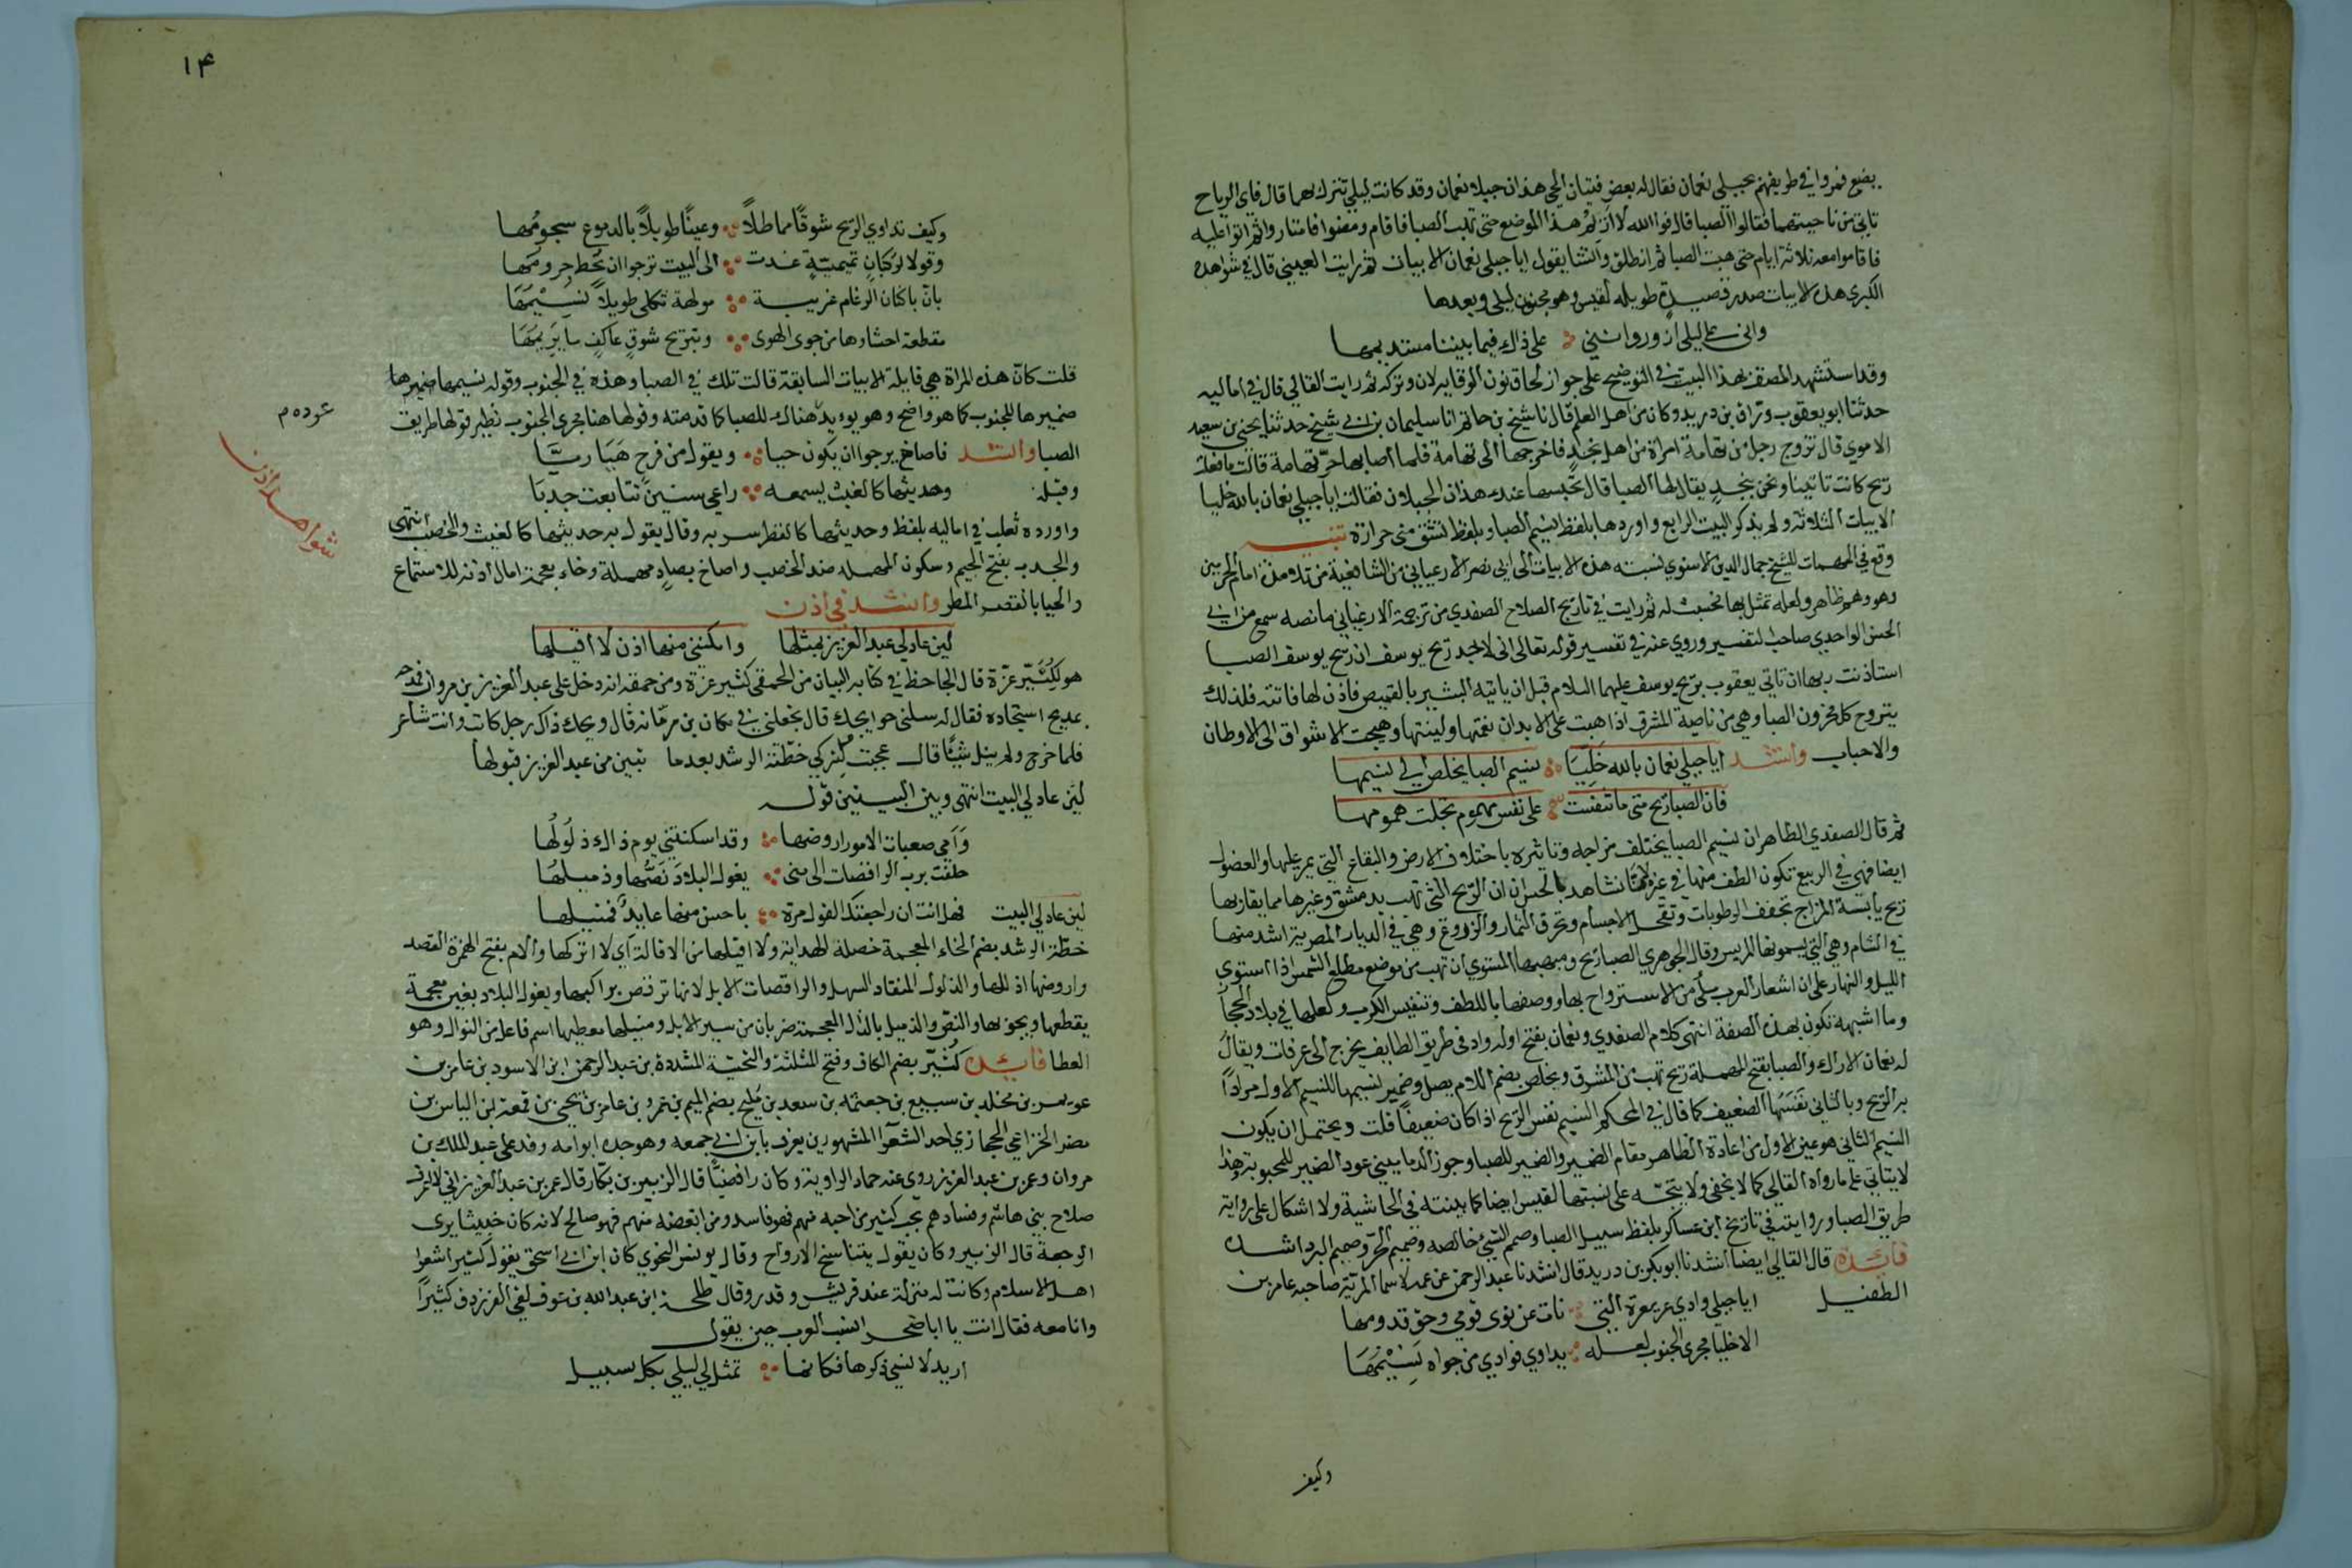 بضع فمروا في طريقهم بجبلي نعمان فقال له بعض فتيان الحي هذان جبلا نعمان وقد كانت ليلى تنزل بهما قال فاي الرياح
تاتي من ناحيتهما فقالوا الصبا قال فوالله لا اريم هذا الموضع حتى تهب الصبا فاقام ومضوا فامتاروا ثم اتوا عليه
فاقاموا معه ثلاثة ايام حتى هبت الصبا ثم انطلق وانشا يقول ايا جبلي نعمان الابيات ثم رايت العيني قال في شواهده
الكبرى هذه الابيات صدر قصيدة طويلة لقيس وهو مجنون ليلى وبعدها
واني على ليلى لزار وانني على ذاك فيما بيننا مستديمها
وقد استشهد المصنف بهذا البيت في التوضيح على جواز لحاق نون الوقاية لان وتركه ثم رايت القالي قال في اماليه
حدثنا ابو يعقوب وراق بن دريد وكان من اهل العلم قال نا شيخ بن حاتم انا سليمان بن ابي شيخ حدثنا يحيى بن سعيد
الاموي قال تزوج رجل من تهامة امراة من اهل نجد فاخرجها الى تهامة فلما اصابها حر تهامة قالت ما فعلت
ريح كانت تاتينا ونحن بنجد يقال لها الصبا قال تحبسها عندك هذان الجبلان فقالت ايا جبلي نعمان بالله خليا
الابيات الثلاثة ولم يذكر البيت الرابع واوردها بلفظ نسيم الصبا وبلفظ تشف مني حرارة تنبيه
وقع في المهمات للشيخ جمال الدين الاسنوي نسبته هذه الابيات الى ابي نصر الارغياني من الشافعية من تلامذة امام الحرمين
وهو وهم ظاهر ولعله تمثل بها نحسبت له ثم رايت في تاريخ الصلاح الصفدي من ترجمة الارغياني ما نصه سمع من ابي
الحسن الواحدي صاحب التفسير وروي عنه في تفسير قوله تعالى اني لاجد ريح يوسف ان ريح يوسف الصبا
استاذنت ربها ان تاتي يعقوب بريح يوسف عليهما السلام قبل ان ياتيه البشير بالقميص فاذن لها فاتته فلذلك
يتروح كل محزون الصبا وهي من ناحية المشرق اذا هبت على الابدان نعمتها ولينتها وهيجت الاشواق الى الاوطان
والاحباب وانشد ايا جبلي نعمان بالله خليا نسيم الصبا يخلص الي نسيمها
فان الصبا ريح متى ما تنفست على نفس مهموم تجلت همومها
ثم قال الصفدي الظاهر ان نسيم الصبا يختلف مزاجه وتاثيره باختلاف الارض والبقاع التي يمر عليها والفصول
ايضا فهي في الربيع تكون الطف منها في غيره لانا نشاهد بالحس ان الريح التي تهب بدمشق وغيرها مما يقاربها
ريح يابسة المزاج تجفف الرطوبات وتقحل الاجسام وتحرق الثمار والزروع وهي في الديار المصرية اشد منها
في الشام وهي التي يسمونها المريس وقال الجوهري الصبا ريح ومهبها المستوي ان تهب من موضع مطلع الشمس اذا استوى
الليل والنهار على ان اشعار العرب ملأى من الاسترواح بها ووصفها باللطف وتنفيس الكرب ولعلها في بلاد الحجاز
وما اشبهه تكون بهذه الصفة انتهى كلام الصفدي ونعمان بفتح اوله واد في طريق الطايف يخرج الى عرفات ويقال
له نعمان الاراك والصبا بفتح المهملة ريح تهب من المشرق ويخلص بضم اللام يصل وضمير نسيمها للنسيم الاول مرادا
به الريح وبالثاني نفسها الضعيف كما قال في المحكم النسيم نفس الريح اذا كان ضعيفا قلت ويحتمل ان يكون
النسيم الثاني هو عين الاول من اعادة الظاهر مقام الضمير والضمير للصبا وجوز الدماميني عود الضمير للمحبوبة وهذا
لا يتاتى على ما رواه القالي كما لا يخفى ولا يتجه على نسبتها لقيس ايضا كما بينته في الحاشية ولا اشكال على رواية
طريق الصبا ورايته في تاريخ ابن عساكر بلفظ سبيل الصبا وصميم الشيء خالصه وصميم الحر وصميم البرد اشده
فائدة قال القالي ايضا انشدنا ابو بكر بن دريد قال انشدنا عبد الرحمن عن عمه لاسما المرية صاحبة عامر بن
الطفيل ايا جبلي وادي عريعرة التي نات عن نوى قومي وحق قدومها
الا خليا مجرى الجنوب لعله يداوي فوادي من جواه نسيمها
وكيف
١٤
وكيف تداوي الريح شوقا مماطلا وعينا طويلا بالدموع سجومها
وقولا لركبان تميمية غدت الى البيت ترجوا ان تحط جرومها
بان باكناف الرغام غريبة مولهة ثكلى طويلا نئيمها
مقطعة احشاوها من جوى الهوى وتبريح شوق عاكف ما يريمها
قلت كان هذه المراة هي قايلة الابيات السابقة قالت تلك في الصبا وهذه في الجنوب وقوله نسيمها ضميرها
ضميرها للجنوب كما هو واضح وهو يويد عوده هناك للصبا كما قدمته وقولها هنا مجرى الجنوب نظير قولها طريق
الصبا وانشد فاصاخ يرجوا ان يكون حيا ويقول من فرح هيا ربا
وقبله وحديثها كالغيث يسمعه راعي سنين تتابعت جدبا
واورده ثعلب في اماليه بلفظ وحديثها كالقطر سر به وقال يقول به حديثها كالغيث والخصب انتهى
والجدب بفتح الجيم وسكون المهملة ضد الخصب واصاخ بصاد مهملة وخاء معجمة امال اذنه للاستماع
والحيا بالقصر المطر وانشد في اذن
لين عاد لي عبد العزيز بمثلها وامكنني منها اذن لا اقيلها
هو لكثير عزة قال الجاحظ في كتابه البيان من الحمقى كثير عزة ومن حمقه انه دخل على عبد العزيز بن مروان فمدحه
بمديح استجاده فقال له سلني حوايجك قال تجعلني في مكان بن رمانة قال ويحك ذاك رجل كاتب وانت شاعر
فلما خرج ولم ينل شيئا قال عجبت لتركي خطة الرشد بعدما تبين من عبد العزيز قبولها
لين عاد لي البيت انتهى وبين البيتين قوله
وأمي صعبات الامور اروضها وقد امكنتني يوم ذاك ذلولها
حلفت برب الراقصات الى منى يغول البلاد نصها وذميلها
لين عاد لي البيت فهل انت ان راجعتك القول مرة باحسن منها عايد فمنيلها
خطة الرشد بضم الخاء المعجمة خصلة الهداية ولا اقيلها من الاقالة اي لا اتركها والام بفتح الهمزة القصد
واروضها اذللها والذلول المنقاد السهل والراقصات الابل لانها ترقص براكبها ويغول البلاد بغين معجمة
يقطعها ويجوبها والنص والذميل بالذال المعجمة ضربان من سير الابل ومنيلها معطيها اسم فاعل من النوال وهو
العطا فائدة كثير بضم الكاف وفتح المثلثة والتحتية المشددة بن عبد الرحمن ابن الاسود بن عامر بن
عويمر بن مخلد بن سبيع بن جعثمة بن سعد بن مليح بضم الميم بن عمرو بن عامر بن يحيى بن قمعة بن الياس بن
مضر الخزاعي الحجازي احد الشعرا المشهورين يعرف بابن ابي جمعة وهو جده ابو امه وفد على عبد الملك بن
مروان وعمر بن عبد العزيز روى عنه حماد الراوية وكان رافضيا قال الزبير بن بكار قال عمر بن عبد العزيز اني لاعرف
صلاح بني هاشم وفسادهم بحب كثير من احبه منهم فهو فاسد ومن ابغضه منهم فهو صالح لانه كان خبيثا يرى
الرجعة قال الزبير وكان يقول بتناسخ الارواح وقال يونس النحوي كان ابن ابي اسحق يقول كثير اشعر
اهل الاسلام وكانت له منزلة عند قريش وقدر وقال طلحة ابن عبد الله بن عوف لقي الفرزدق كثيرا
وانا معه فقال انت يا ابا صخر انسب العرب حين يقول
اريد لانسى ذكرها فكانما تمثل لي ليلى بكل سبيل
عوده م
شواهد اذن